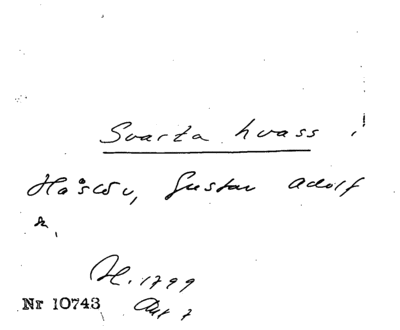 Svarta hvass
Håslöv, Gustav Adolf
H. 1799
Nr 10743